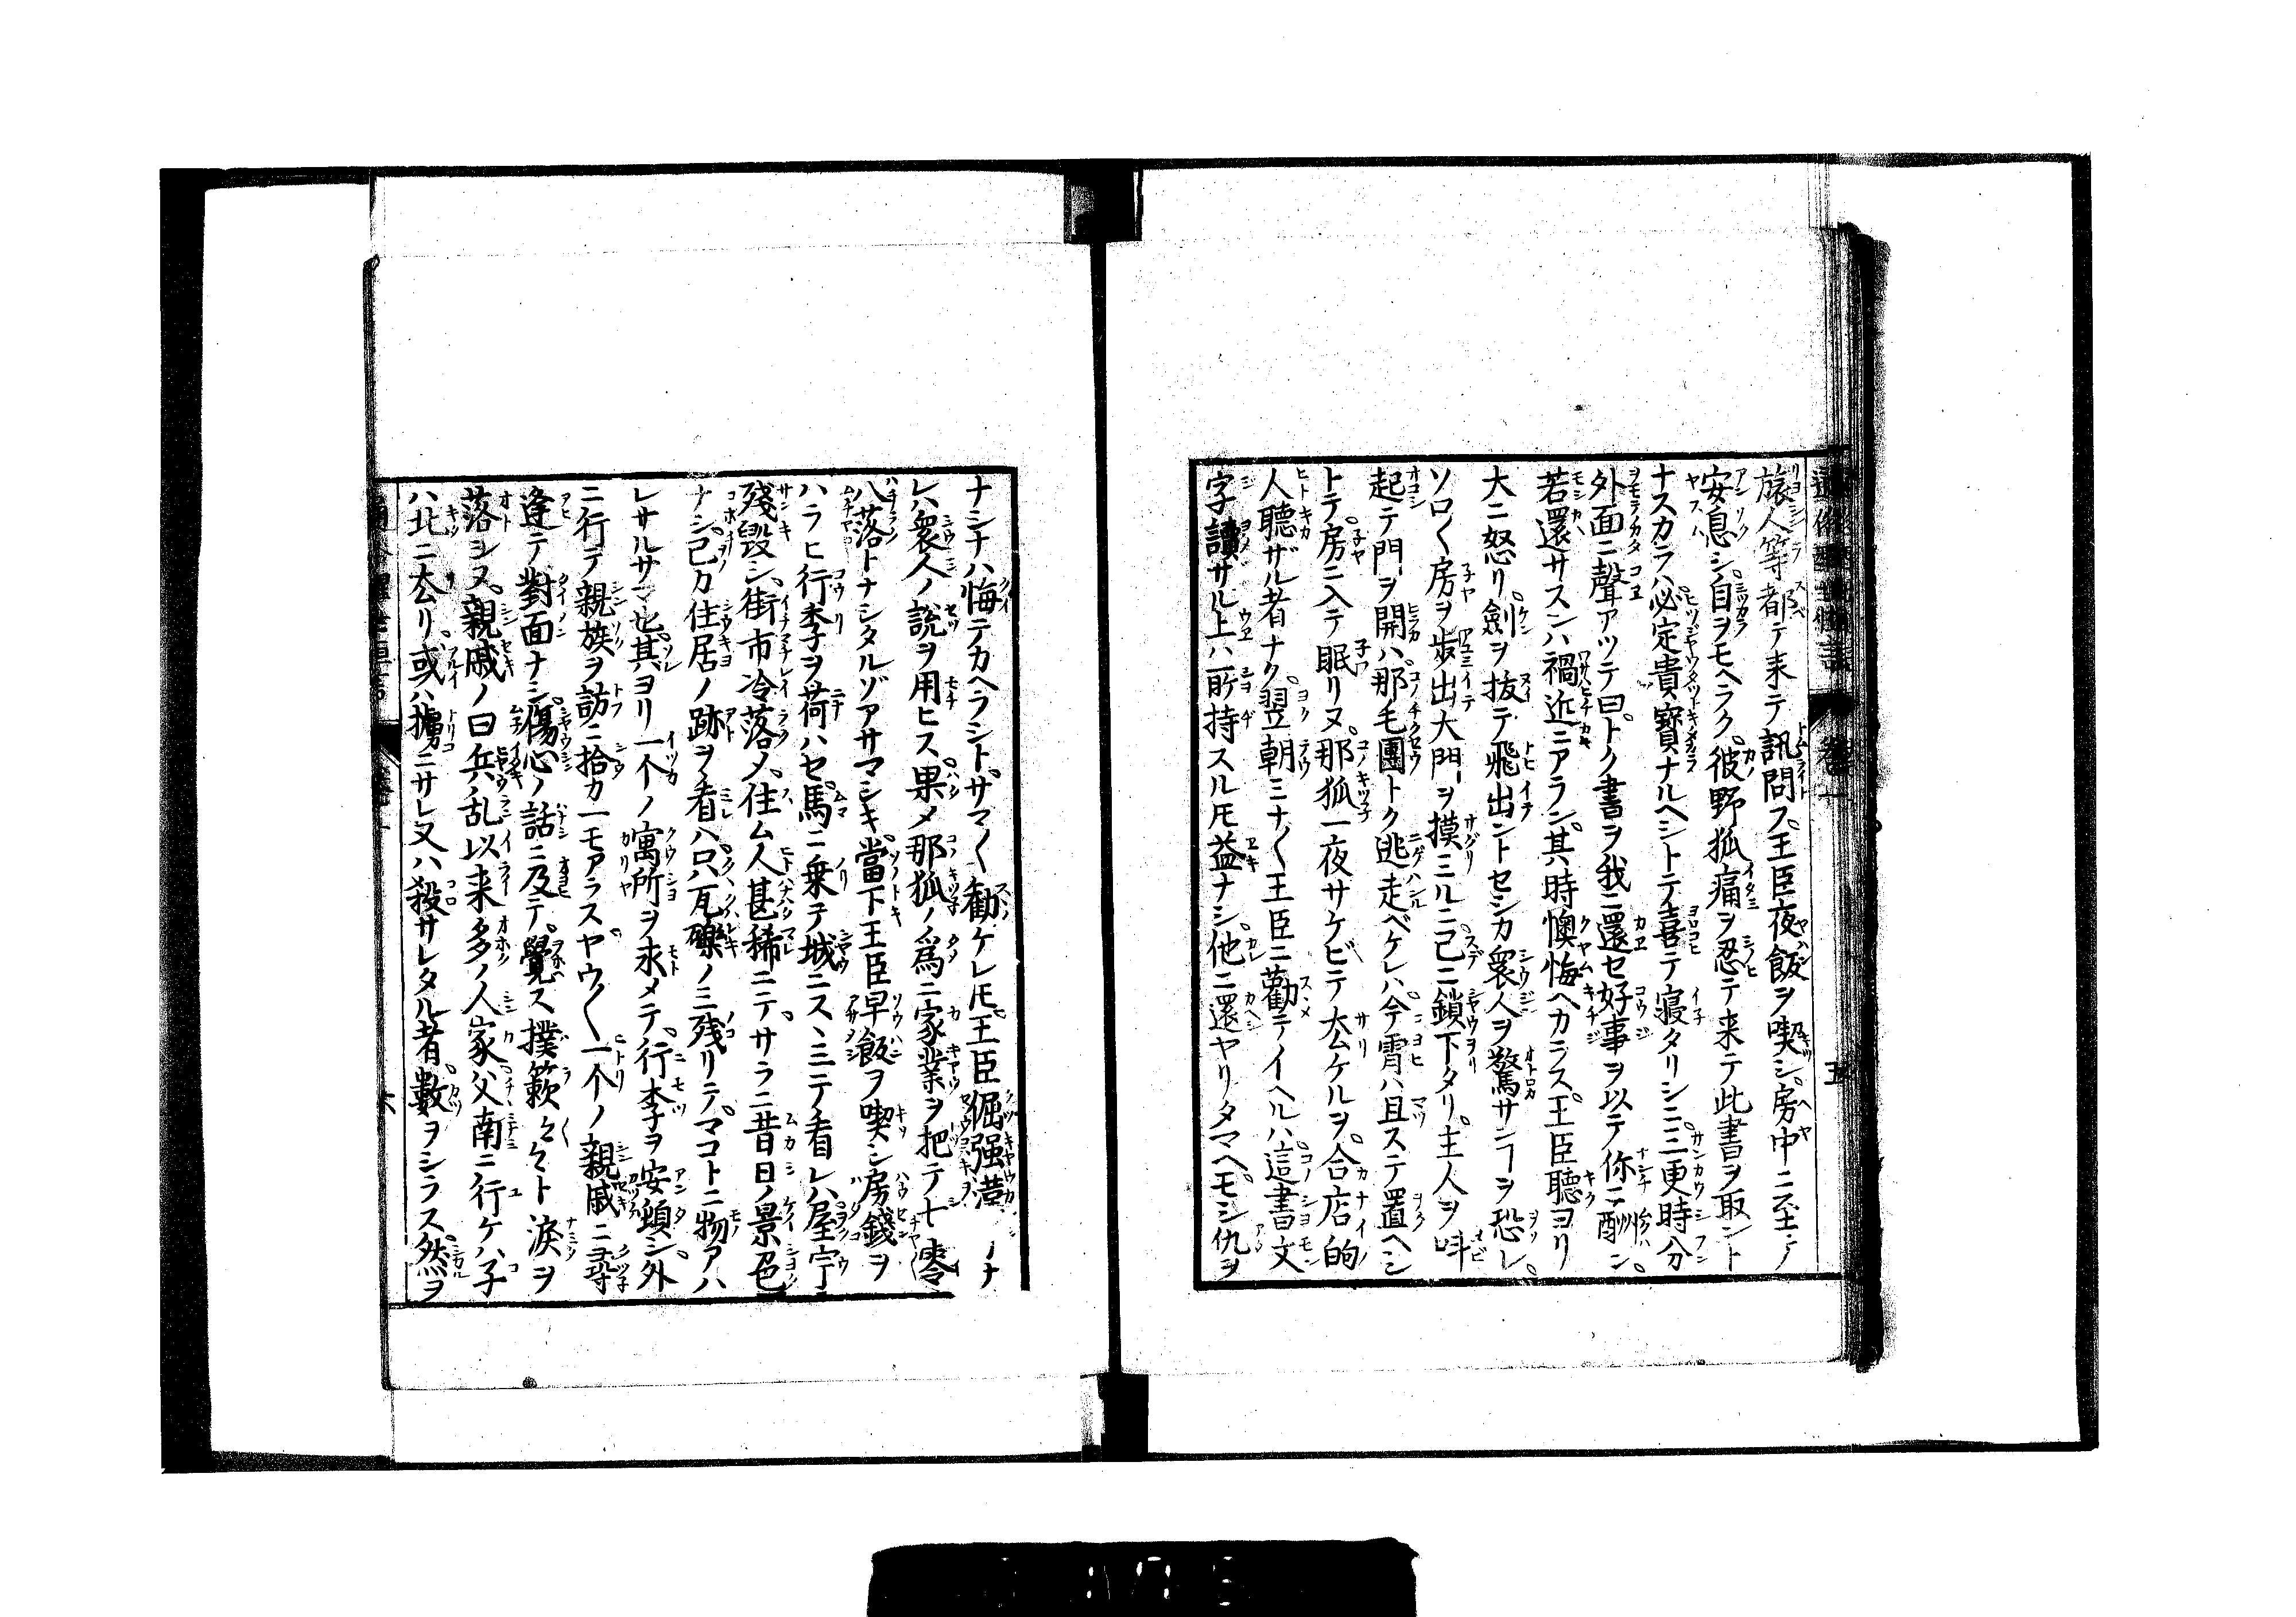 旅人等都テ来テ訊問ス。王臣夜飯ヲ喫シ。房中ニ至テ
安息シ。自ヲモヘラク。彼野狐痛ヲ忍テ来テ此書ヲ取ント
ナスカラハ。必定貴寳ナルヘシトテ。喜テ寝タリシニ。三更時分
外面ニ聲アツテ曰。トク書ヲ我ニ還セ好事ヲ以テ你ニ酬ン。
若還サスンハ禍近ニアラン。其時懊悔ヘカラス。王臣聴ヨリ
大ニ怒リ。劍ヲ抜テ飛出ントセシカ衆人ヲ驚サンヿヲ恐レ。
ソロ〱房ヲ歩出大門ヲ摸ミルニ。已ニ鎖下タリ。主人ヲ呌
起テ門ヲ開ハ。那毛團トク逃走ベケレハ。今霄ハ且ステ置ヘシ
トテ。房ニ入テ眠リヌ。那狐一夜サケビテ去ケルヲ。合店的
人聴ザル者ナク。翌朝ミナ〱王臣ニ勸テイヘルハ。這書文
字讀ザル上ハ。所持スル𪜈益ナシ。他ニ還ヤリタマヘ。モシ仇ヲ
ナシナハ悔テカヘラシト。サマ〱勸ケレ𪜈。王臣倔强
レハ。衆人ノ説ヲ用ヒス。果メ那狐ノ爲ニ家業ヲ把テ七零
八落トナシタルゾアサマシキ。當下王臣早飯ヲ喫シ房錢ヲ
ハラヒ行李ヲ荷ハセ。馬ニ乗テ城ニスヽミテ看レハ。屋宇
殘毀シ。街市冷落メ。住ム人甚稀ニテ。サラニ昔日ノ景色
ナシ。己カ住居ノ跡ヲ看ハ。只瓦礫ノミ残リテ。マコトニ物アハ
レサルサマ也。其ヨリ一个ノ寓所ヲ求メテ。行李ヲ安頓シ。外
ニ行テ親族ヲ訪ニ拾カ一モアラス。ヤウ〱一个ノ親戚ニ尋
逢テ對面ナシ。傷心ノ話ニ及テ。覺ス撲簌々々ト淚ヲ
落シヌ。親戚ノ曰兵乱以来多ノ人家父南ニ行ケハ子
ハ北ニ去リ。或ハ擄ニサレ又ハ殺サレタル者。數ヲシラス。然ヲ